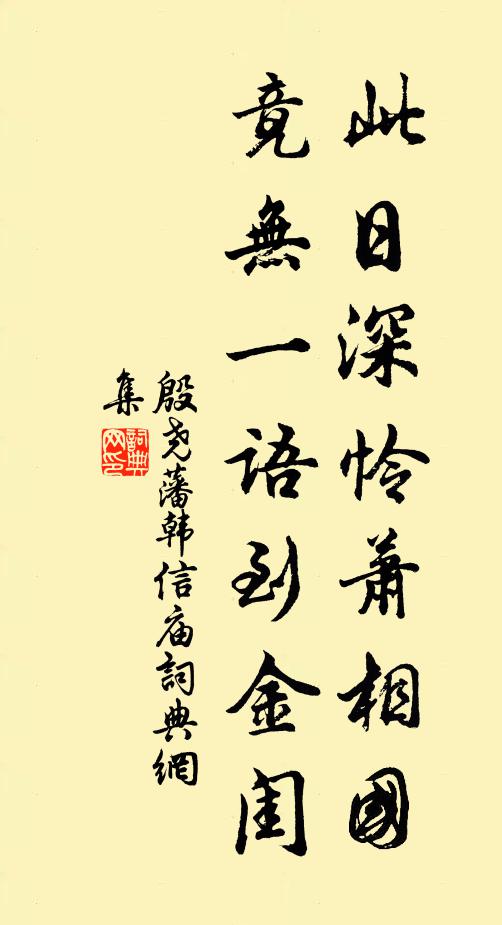 此日深怜蕭相國
竟無一语到金闺
殷尧藩韩信庙詞典網
集
詞典
网印